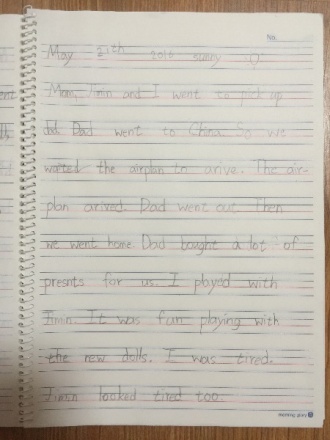 No.
May 21th 2016 sunny
Mom, Jimin and I went to pick up
dad. Dad went to China. So we
waited the airplan to arive. The air-
plan arived. Dad went out. Then
we went home. Dad bought a lot of
presnts for us. I played with
Jimin. It was fun playing with
the new dolls. I was tired.
Jimin looked tired too.
morning glory